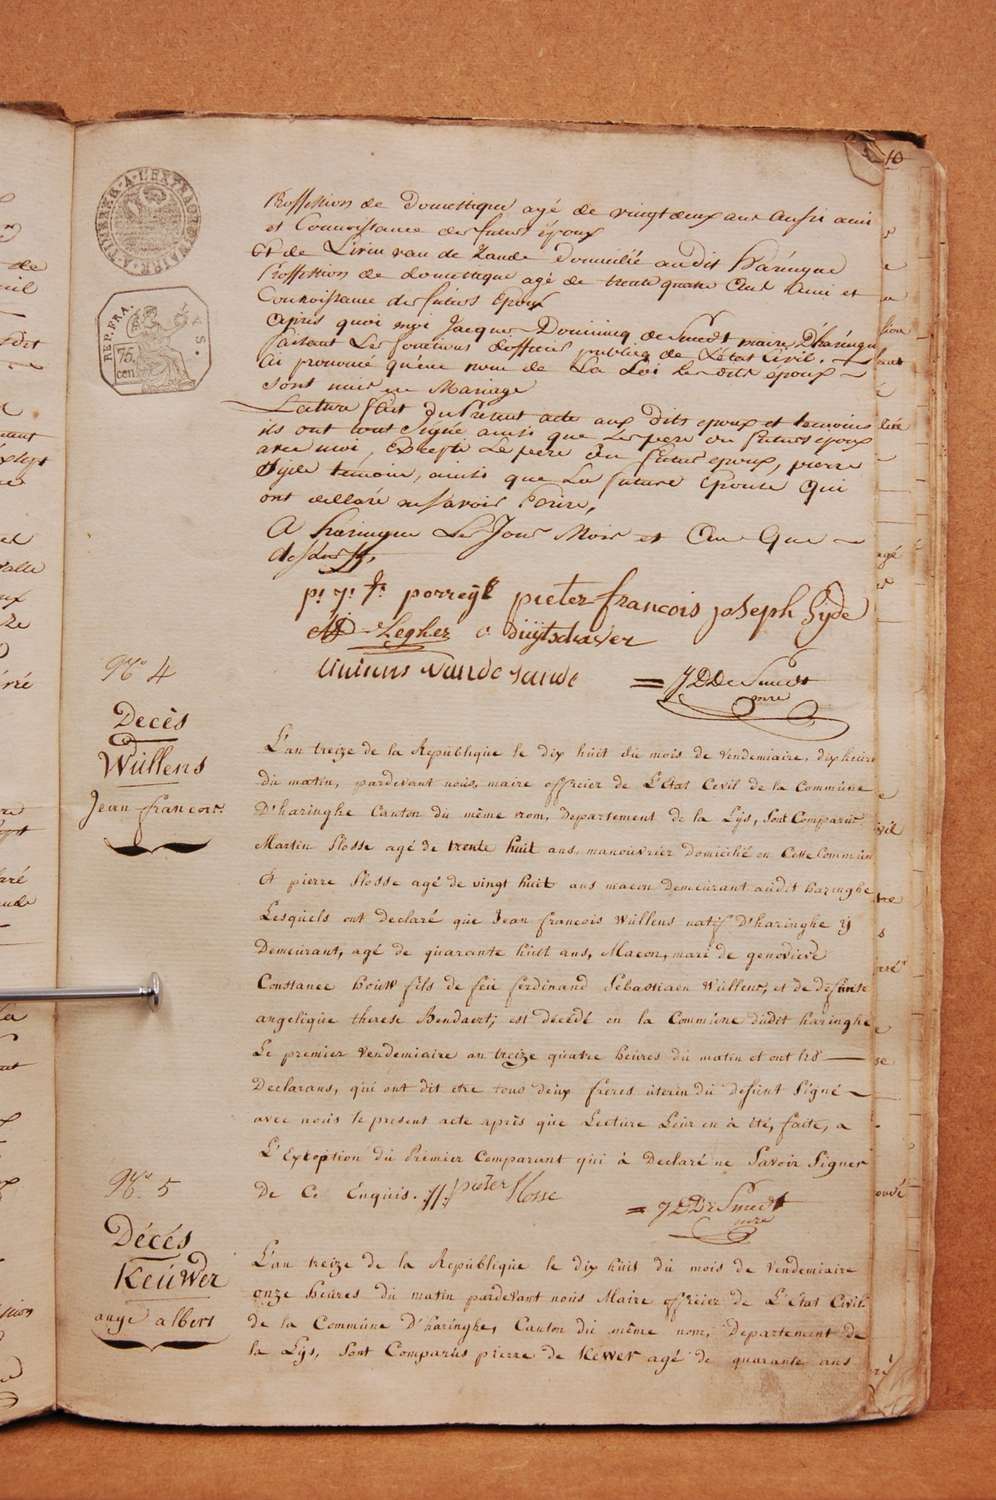 10
TIMBRE A L'EXTRAORDINAIRE
REP. FRA.
75
cen
Proffession de domestique agé de vingt deux ans aussi ami
et Connoissance des futurs époux
Et de Livin van de Zande domicilié audit haringue
Proffession de domestique agé de trente quatre ans ami et
Connoissance des futurs époux
après quoi moi Jacques Dominicq de Smedt maire D'haringue
faisant Les fonctions d'officier publicq de L'état Civil.
ai prononcé qu'au nom de La Loi Les dits époux
sont unis en Mariage
Lecture fait du Présent acte aux dits époux et temoins
ils ont tout signé ainsi que Le pere du futur epoux
avec moi, Excepté Le pere du futur epoux, pierre
Syde temoin, ainsi que La future Epouse qui
ont declaré ne savoir Ecrire,
A haringue Les Jour Mois et An Que
dessus
p. j. f. porreye pieter francois joseph Syde
Legher duijtschaever
Livinus van de sande = J D De Smedt
mre
N.o 4
Decès
Wüllens
Jean francois
L'an treize de la République le dix huit du mois de Vendemiaire, dix heures
du matin, pardevant nous, maire officier de L'Etat Civil de la Commune
D'haringhe Canton du même nom, Departement de la Lÿs, sont Comparus
Martin Slosse agé de trente huit ans manouvrier domicilié en Cette Commun
Et pierre Slosse agé de vingt huit ans macon demeurant audit haringhe
Lesquels ont declaré que Jean francois Wüllens natif D'haringhe ÿ
Demeurant, agé de quarante huit ans, Macon, mari de genoviève
Constance houw fils de feu ferdinand Sébastiaen Wüllens, et de defunte
angelique therese Bendaert, est décedé en la Commune dudit haringhe
Le premier Vendemiaire an treize quatre heures du matin et ont les
Declarans, qui ont dit etre tous deux freres uterin du defunt Signé
avec nous le present acte après que Lecture Leur en à été, faite, a
L'Exception du Premier Comparant qui à Declaré ne Savoir Signer
De Ce Enquis. pieter Slosse = J D De Smedt
mre
N.o 5
Décés
Keúwer
ange albert
L'an treize de la République le dix huit du mois de Vendemiaire
onze heures du matin pardevant nous Maire officier de L'Etat Civil
de la Commune D'haringhe, Canton du même nom, Departement de
la Lÿs, sont Comparus pierre de Kewer agé de quarante ans